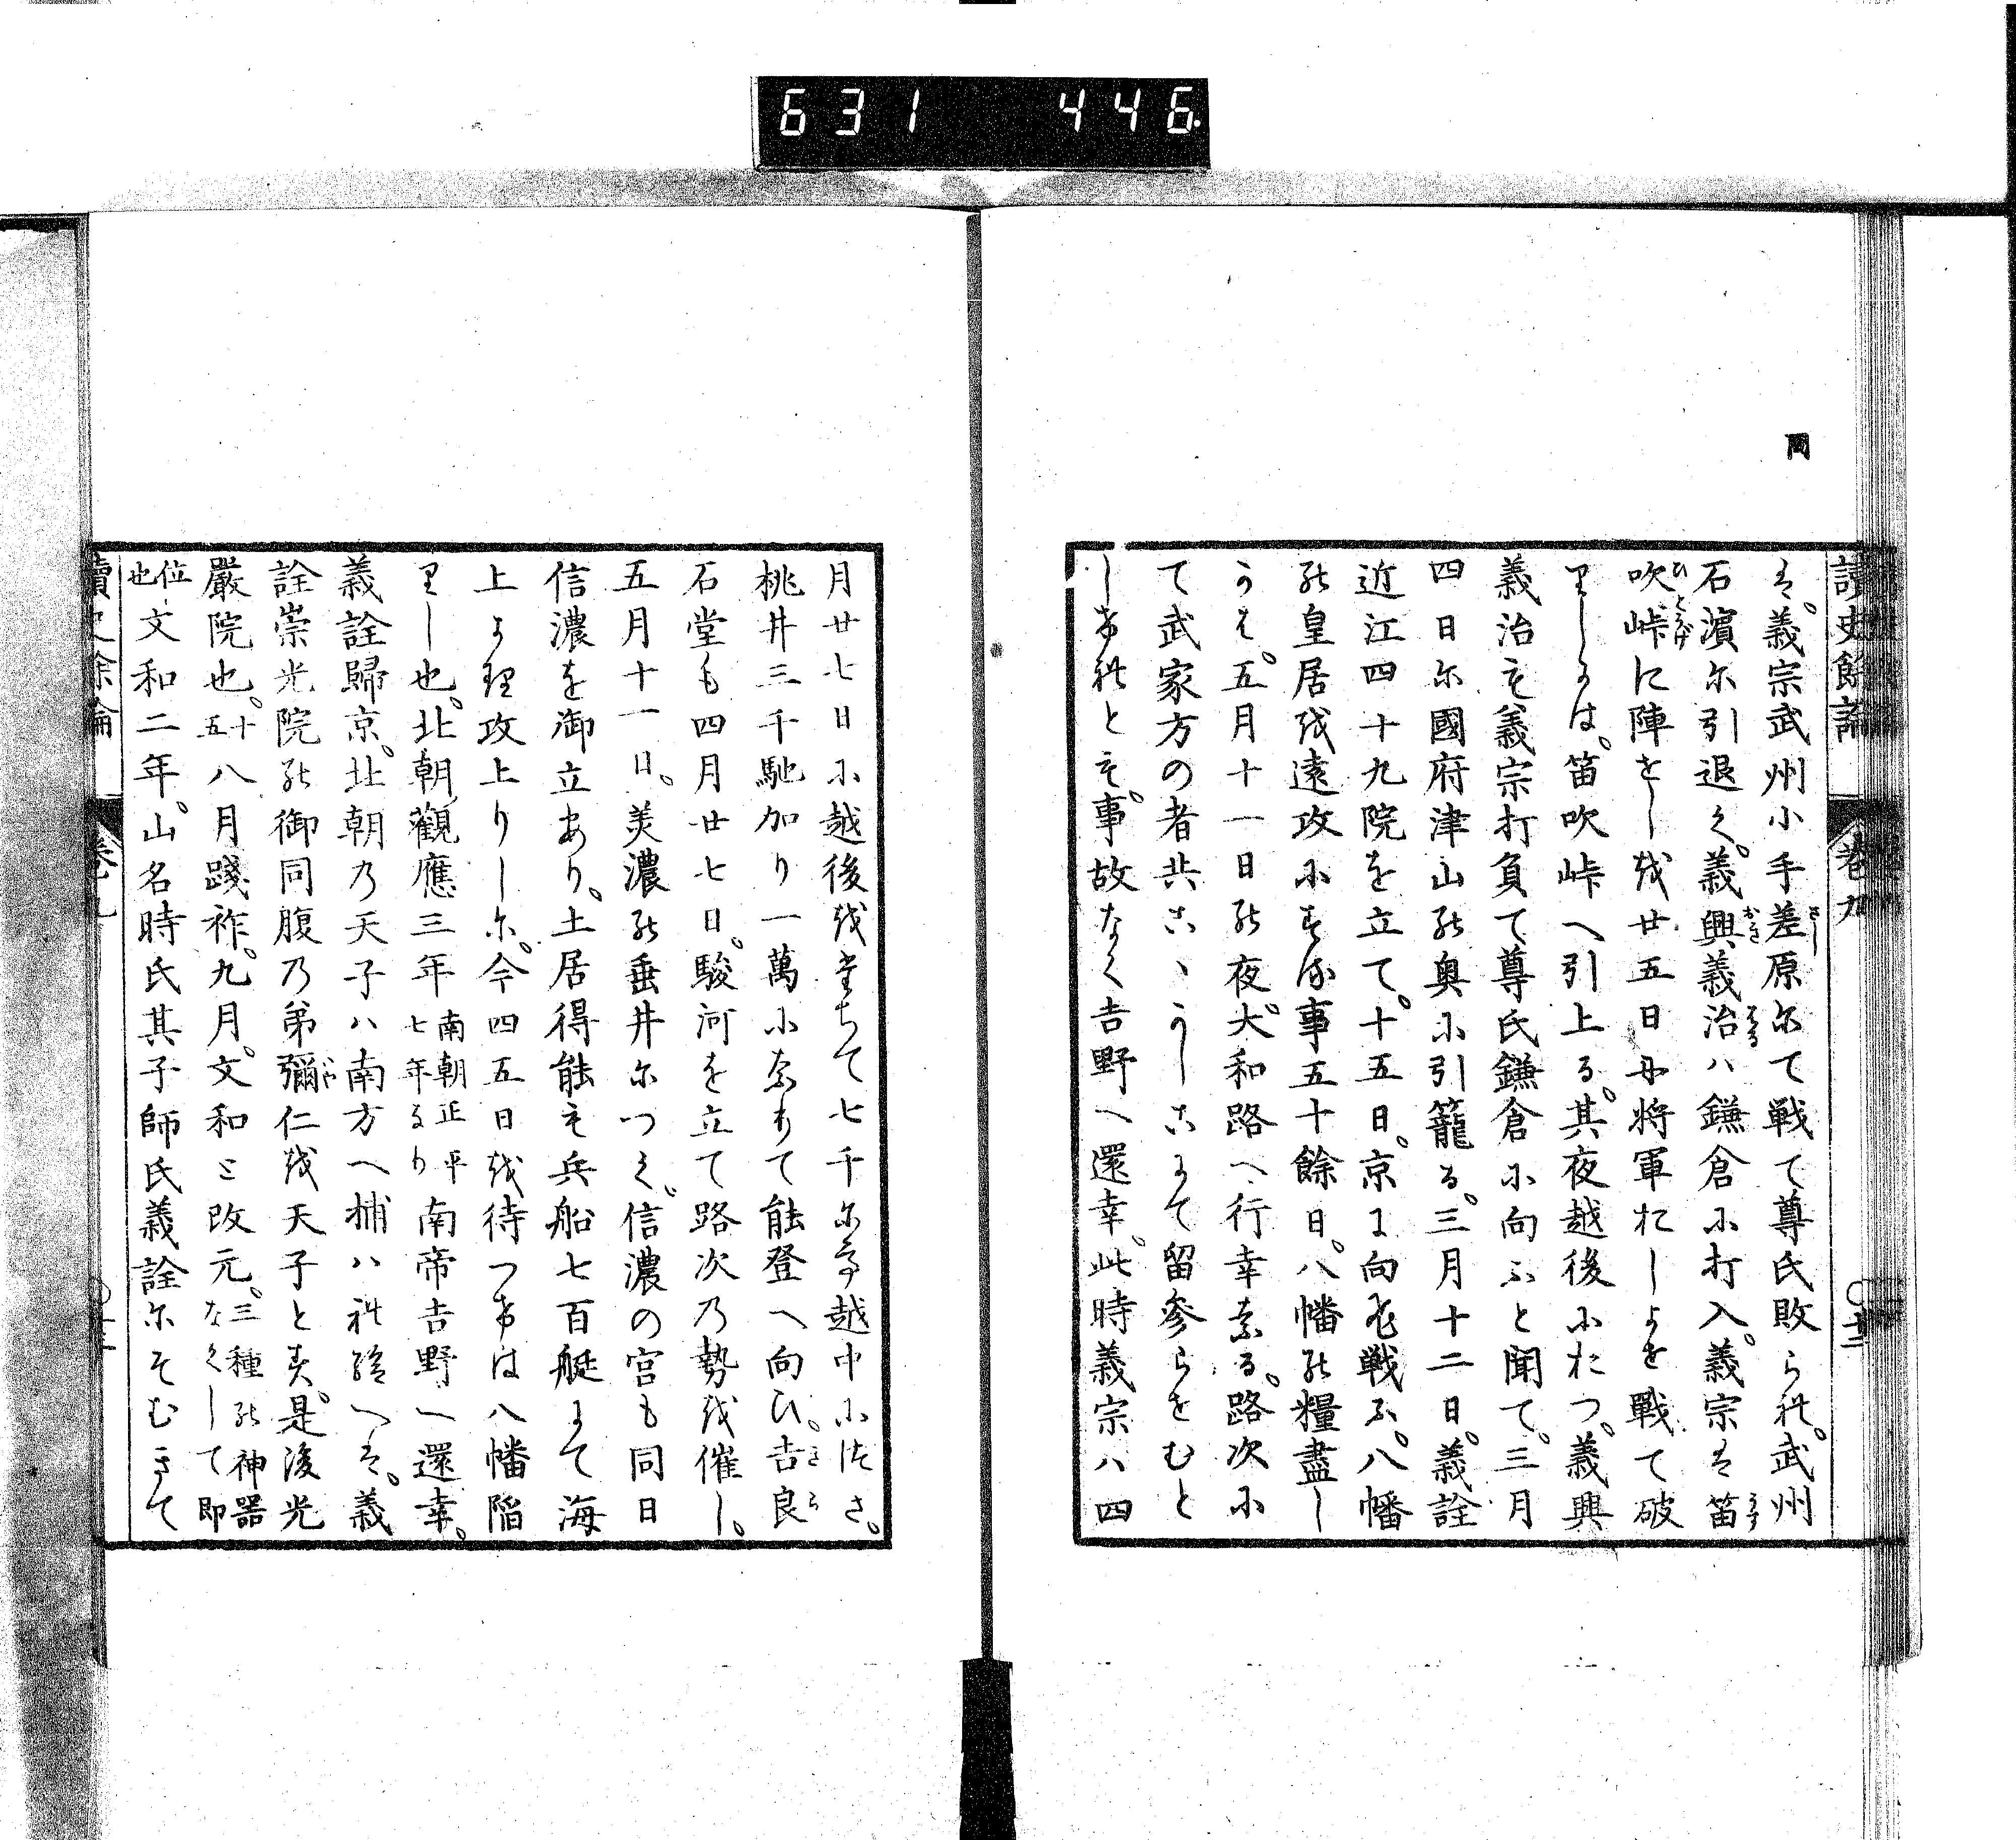 631 446
讀史餘論 卷九 ○十二
は。義宗武州小手差原にて戦て尊氏敗られ。武州
石濱に引退く。義興義治ハ鎌倉に打入。義宗は笛
吹峠に陣をしを廿五日に将軍おしよせ戰て破
りしかは。笛吹峠へ引上る。其夜越後におつ。義興
義治も義宗打負て尊氏鎌倉に向ふと聞て。三月
四日に國府津山の奥に引籠る。三月十二日。義詮
近江四十九院を立て。十五日。京に向ひ戦ふ。八幡
の皇居を遠攻にする事五十餘日。八幡の糧盡し
かは。五月十一日の夜。大和路へ行幸なる。路次に
て武家方の者共こゝかしこにて留参らせむと
しけれとも。事故なく吉野へ還幸。此時義宗ハ四
月廿七日に越後をたちて七千にて越中につき。
桃井三千馳加り一萬になりて能登へ向ひ。吉良
石堂も四月廿七日。駿河を立て路次の勢を催し。
五月十一日。美濃の垂井につく。信濃の宮も同日
信濃を御立あり。土居得能も兵船七百艇にて海
上より攻上りしに。今四五日を待つけは八幡陥
りし也。北朝觀應三年南朝正平七年なり南帝吉野へ還幸。
義詮歸京。北朝の天子ハ南方へ捕ハれ給へは。義
詮崇光院の御同腹の弟彌仁を天子とす。是後光
嚴院也。十五八月踐祚。九月。文和と改元。三種の神器なくして即
位也文和二年。山名時氏其子師氏義詮にそむきて
讀史餘論 卷九